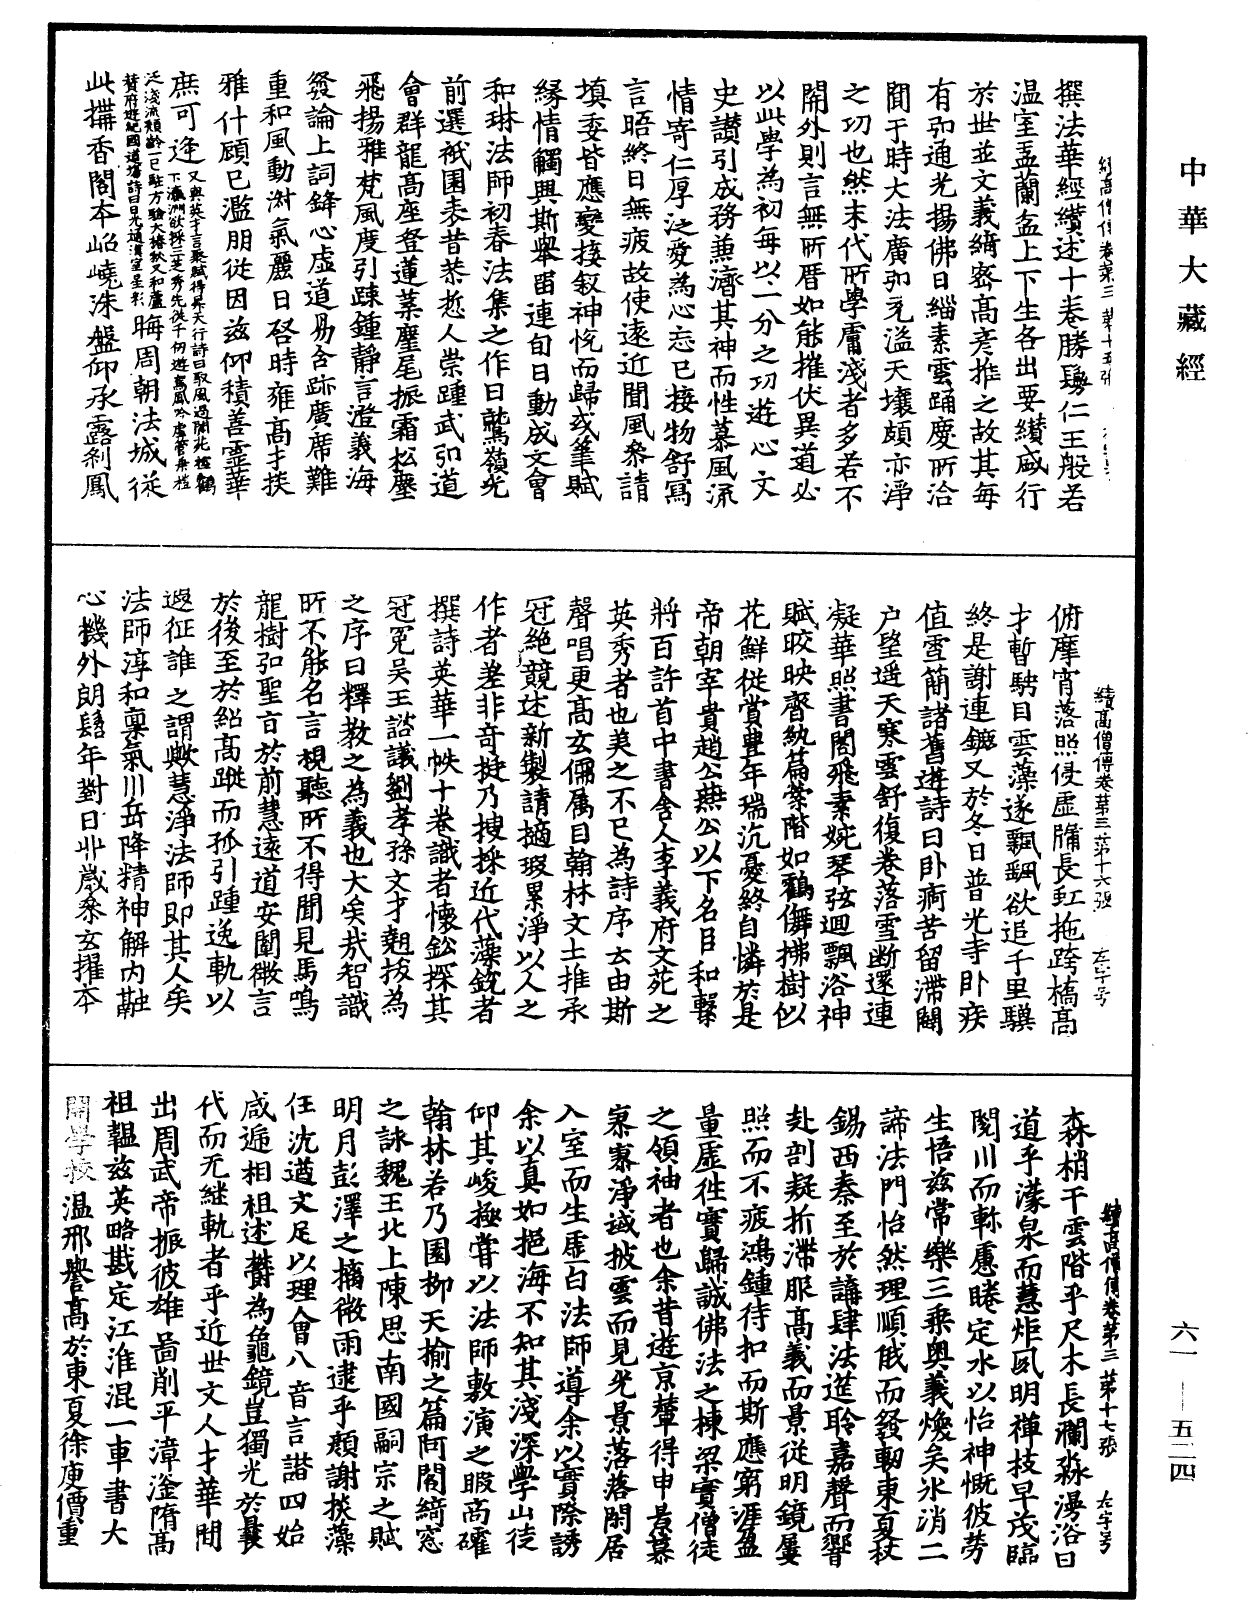 中華大藏經
續高僧傳卷第三 第十五張
撰法華經纘述十卷勝鬘仁王般若
温室盂蘭盆上下生各出要纘盛行
於世並文義綺密高彦推之故其每
有弘通光揚佛日緇素雲踊慶所洽
聞于時大法廣弘充溢天壤頗亦淨
之功也然末代所學庸淺者多若不
開外則言無所厝如能摧伏異道必
以此學為初每以一分之功遊心文
史讃引成務兼濟其神而性慕風流
情寄仁厚泛愛為心忘己接物舒寫
言晤終日無疲故使遠近聞風叅請
填委皆應變接叙神悦而歸或筆賦
縁情觸興斯舉留連旬日動成文會
和琳法師初春法集之作曰鷲嶺光
前選祇園表昔恭哲人崇踵武弘道
會群龍高座登蓮葉麈尾振霜松塵
飛揚雅梵風度引踈鍾靜言澄義海
發論上詞鋒心虚道易合跡廣席難
重和風動淑氣麗日啓時雍高才掞
雅什顧己濫朋從因兹仰積善靈華
庶可逢又與英才言聚賦得昇天行詩曰馭風過閬苑控鶴
下瀛洲欲採三芝秀先從千仞遊駕鳳吟虚管乘槎
泛淺流頹齡一已駐方驗大椿秋又和盧
贊府遊紀國道塲詩曰日光通漢室星彩晦周朝法城從
此搆香閣本岧嶢洙盤仰承露刹鳳
續高僧傳卷第三 第十六張 左字号
俯摩宵落照侵虚牖長虹拖跨橋高
才暫騁目雲藻遂飄飄欲追千里驥
終是謝連鑣又於冬日普光寺卧疾
值雪簡諸舊遊詩曰卧痾苦留滯闢
户望遥天寒雲舒復卷落雪断還連
凝華照書閣飛素婉琴弦迴飄洛神
賦皎映齊紈篇縈階如鶴儛拂樹似
花鮮從賞豊年瑞沉憂終自憐於是
帝朝宰貴趙公燕公以下名臣和繫
將百許首中書舍人李義府文苑之
英秀者也美之不已為詩序云由斯
聲唱更高玄儒属目翰林文士推承
冠絶競述新製請擿瑕累淨以人之
作者差非奇挺乃搜採近代藻鋭者
撰詩英華一帙十卷識者懷鈆探其
冠冕吴王諮議劉孝孫文才翹拔為
之序曰釋教之為義也大矣㢤智識
所不能名言視聽所不得聞見馬鳴
龍樹弘聖旨於前慧遠道安闡微言
於後至於紹高蹤而孤引踵逸軌以
遐征誰之謂歟慧淨法師即其人矣
法師淳和稟氣川岳降精神解内融
心機外朗髫年對日丱歳叅玄擢本
續高僧傳卷第三 第十七張 左字号
森梢干雲階乎尺木長瀾淼漫浴日
道乎濛泉而慧炬夙明禪技早茂臨
閲川而軫慮睠定水以怡神慨彼勞
生悟兹常樂三乗奥義煥矣氷消二
諦法門怡然理順俄而發軔東夏杖
錫西秦至於講肆法筵聆嘉聲而響
赴剖疑折滯服高義而景從明鏡屢
照而不疲鴻鍾待扣而斯應窮涯盈
量虚往實歸誠佛法之棟梁實僧徒
之領袖者也余昔遊京輦得申景慕
寨寨淨誠披雲而見光景落落閑居
入室而生虚白法師導余以實際誘
余以真如挹海不知其淺深學山徒
仰其峻極嘗以法師敷演之暇商確
翰林若乃園柳天榆之篇阿閣綺窓
之詠魏王北上陳思南國嗣宗之賦
明月彭澤之摛微雨逮乎顔謝掞藻
任沈遒文足以理會八音言諧四始
咸逓相祖述欝為龜鏡豈獨光於曩
代而无継軌者乎近世文人才華間
出周武帝振彼雄啚削平漳滏隋高
祖韞兹英略戡定江淮混一車書大
開學校温邢譽高於東夏徐庾價重
六一——五二四